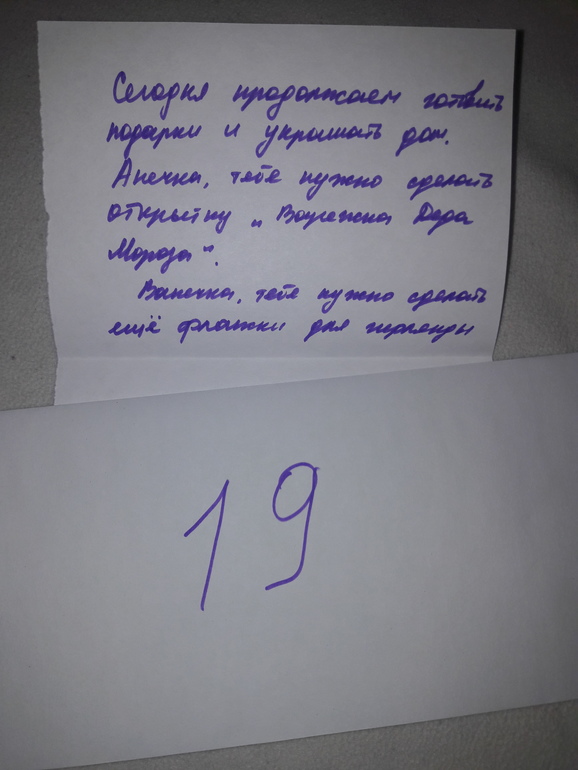 Сегодня продолжаем готовить
подарки и украшать дом.
Анечка, тебе нужно сделать
открытку „Варежка Деда
Мороза".
Ванечка, тебе нужно сделать
ещё флажки для гирлянды
19